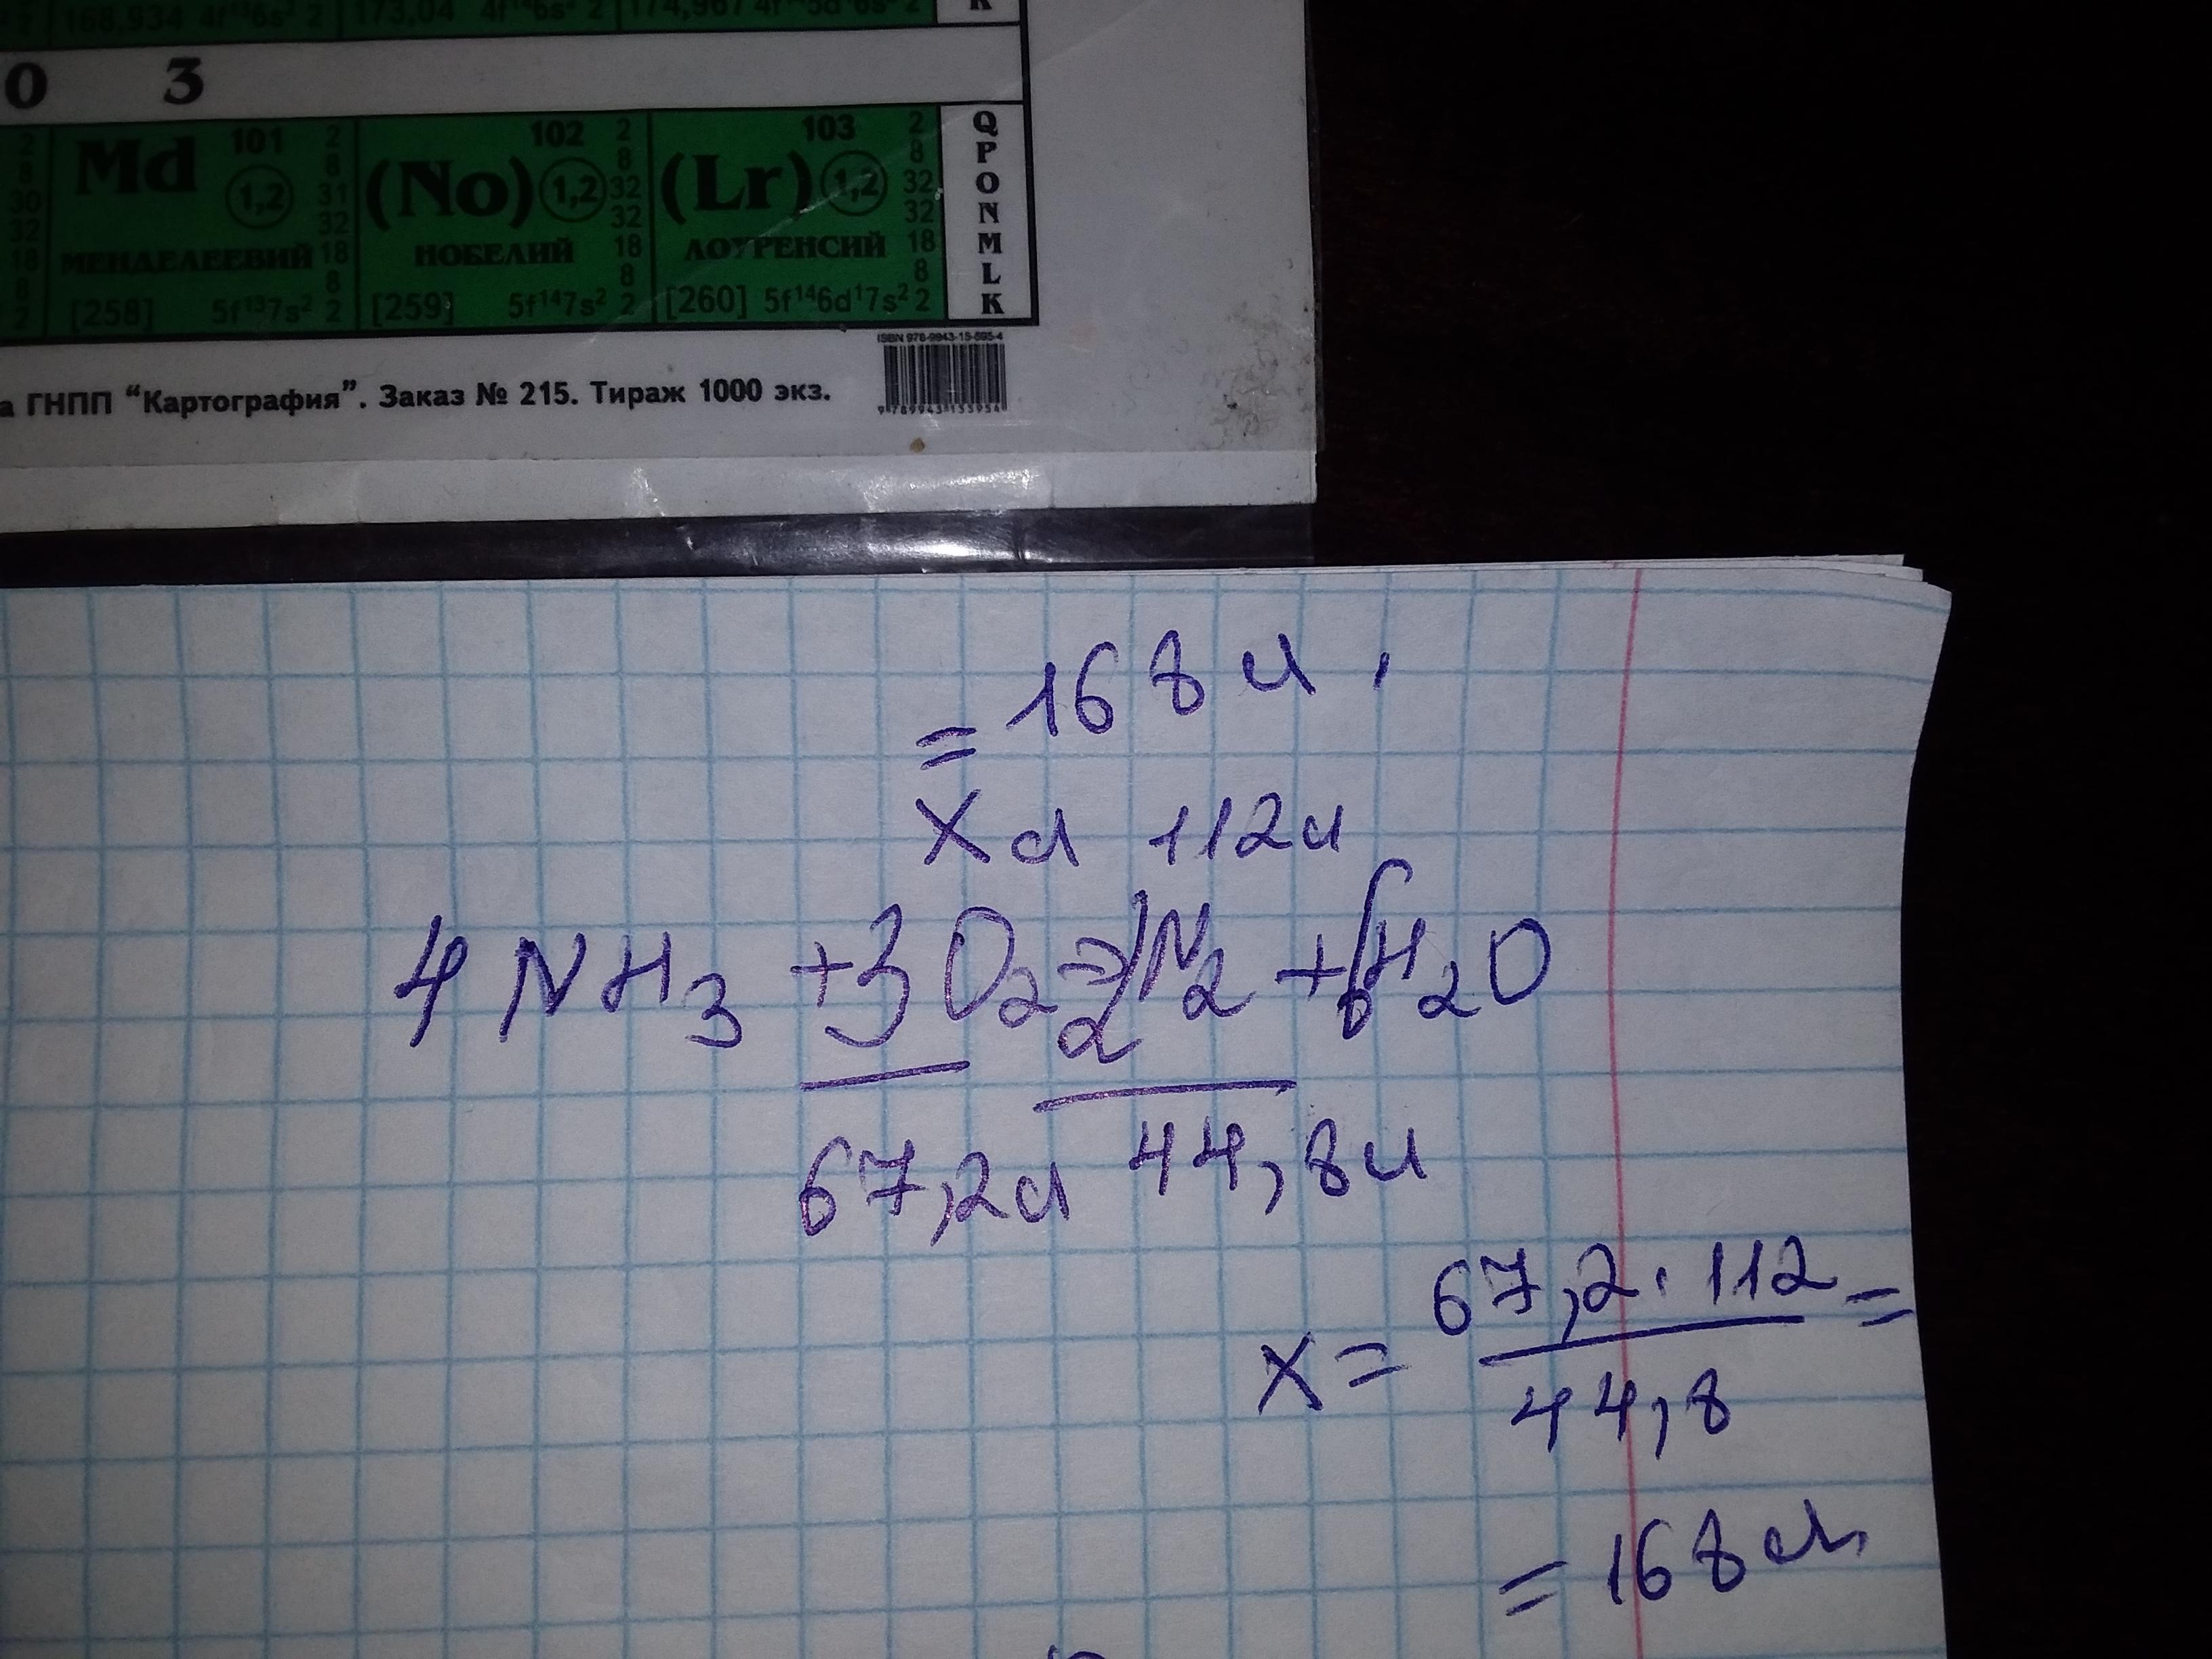 168,934 4f¹³6s² 2 173,04 4f¹⁴6s² 2 174,967 4f¹⁴5d¹6s² 2 K
0 3
2 8 30 32 18 8 2
Md 101 1,2 2 8 31 32 18 8 2
МЕНДЕЛЕЕВИЙ
[258] 5f¹³7s²
(No) 102 1,2 2 8 32 32 18 8 2
НОБЕЛИЙ
[259] 5f¹⁴7s²
(Lr) 103 1,2 2 8 32 32 18 8 2
ЛОУРЕНСИЙ
[260] 5f¹⁴6d¹7s²
Q
P
O
N
M
L
K
ISBN 978-9943-15-595-4
а ГНПП “Картография”. Заказ № 215. Тираж 1000 экз.
= 168 л.
X л 112 л
4 NH₃ + 3 O₂ = 2 N₂ + 6 H₂O
67,2 л 44,8 л
X = 67,2 · 112 / 44,8 =
= 168 л.